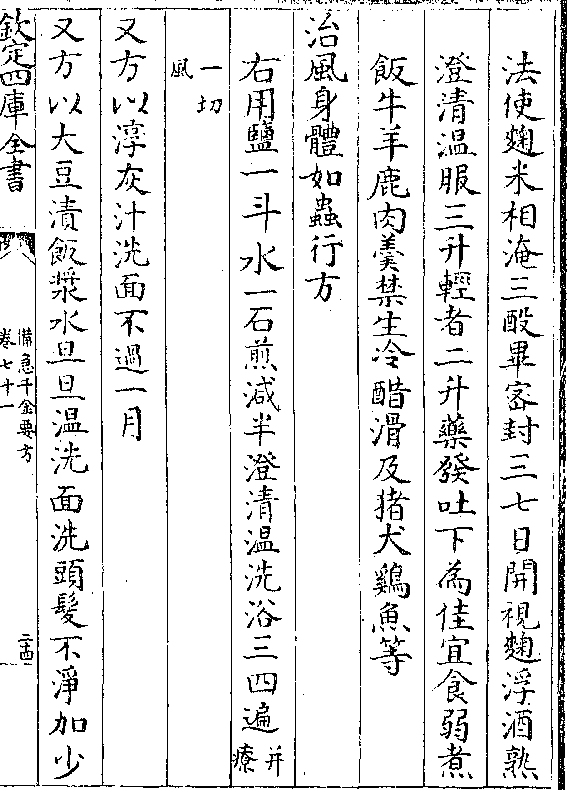 法使麴米相淹三酘畢密封三七日開視麴浮酒熟
澄清温服三升輕者二升藥發吐下為佳宜食弱煮
飯牛羊鹿肉羮禁生冷醋滑及猪犬鷄魚等
治風身體如蟲行方
右用鹽一斗水一石煎減半澄清温洗浴三四遍并療
一切風
又方以淳灰汁洗面不過一月
又方以大豆漬飯漿水旦旦温洗面洗頭髮不淨加少
欽定四庫全書
備急千金要方
卷七十一
二十四